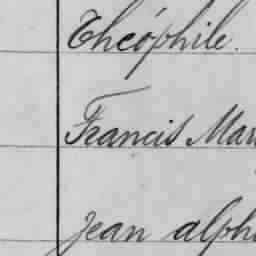 Théophile.
Francis Mar
Jean alph